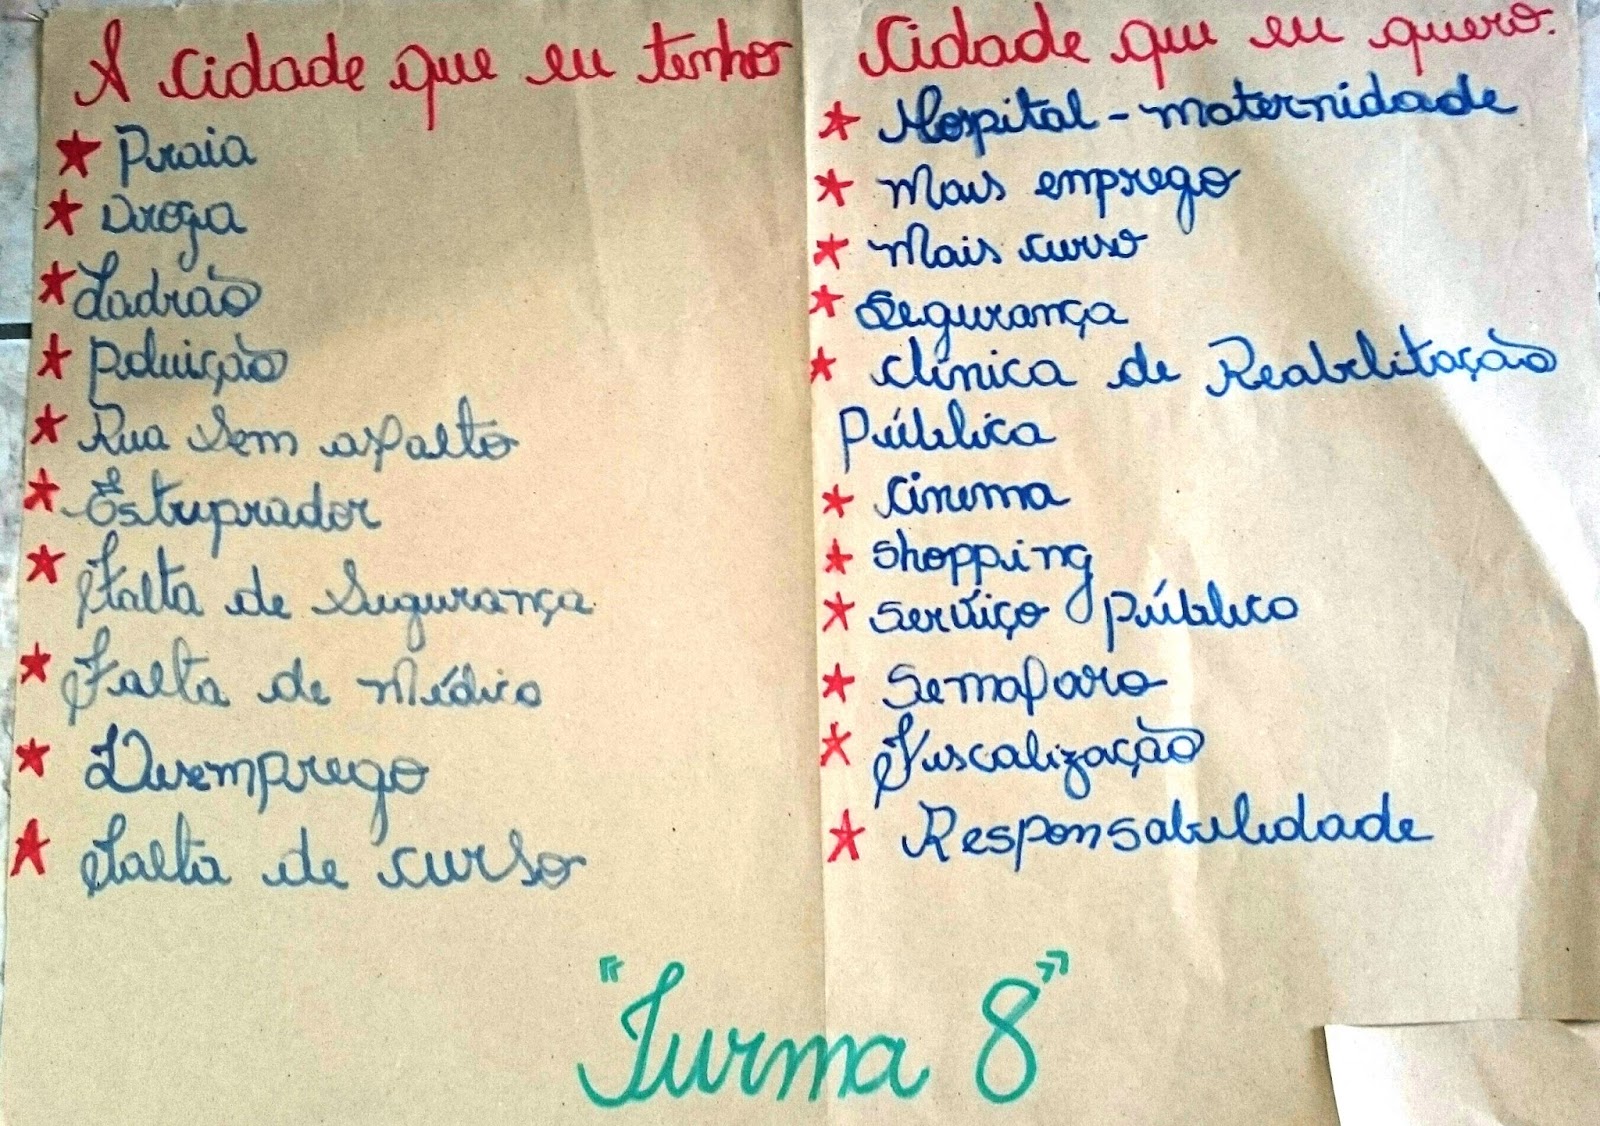 A cidade que eu tenho
★ Praia
★ Droga
★ Ladrão
★ Poluição
★ Rua Sem asfalto
★ Estruprador
★ Falta de Segurança
★ Falta de Médico
★ Desemprego
★ Falta de curso
Cidade que eu quero.
★ Hospital - maternidade
★ Mais emprego
★ Mais curso
★ Segurança
★ Clínica de Reabelitação
Pública
★ Cinema
★ Shopping
★ Serviço Público
★ Semaforo
★ Fiscalização
★ Responsabilidade
"Turma 8"